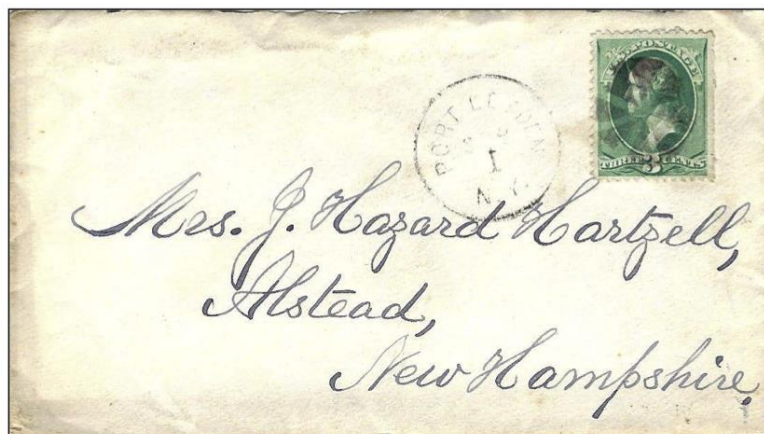 U.S. POSTAGE
THREE 3 CENTS
PORT LEYDEN
1
N.Y.
Mrs. J. Hazard Hartzell,
Alstead,
New Hampshire.